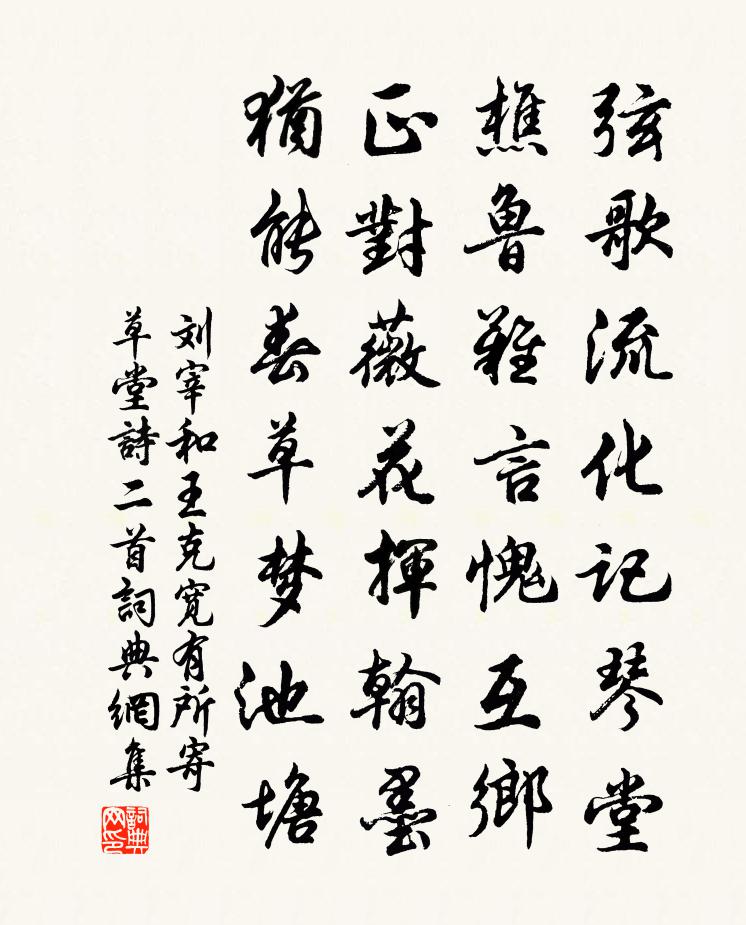 弦歌流化記琴堂
樵魯難言愧互鄉
正對薇花揮翰墨
猶能春草梦池塘
刘宰和王克寬有所寄
草堂詩二首詞典網集
詞典网印